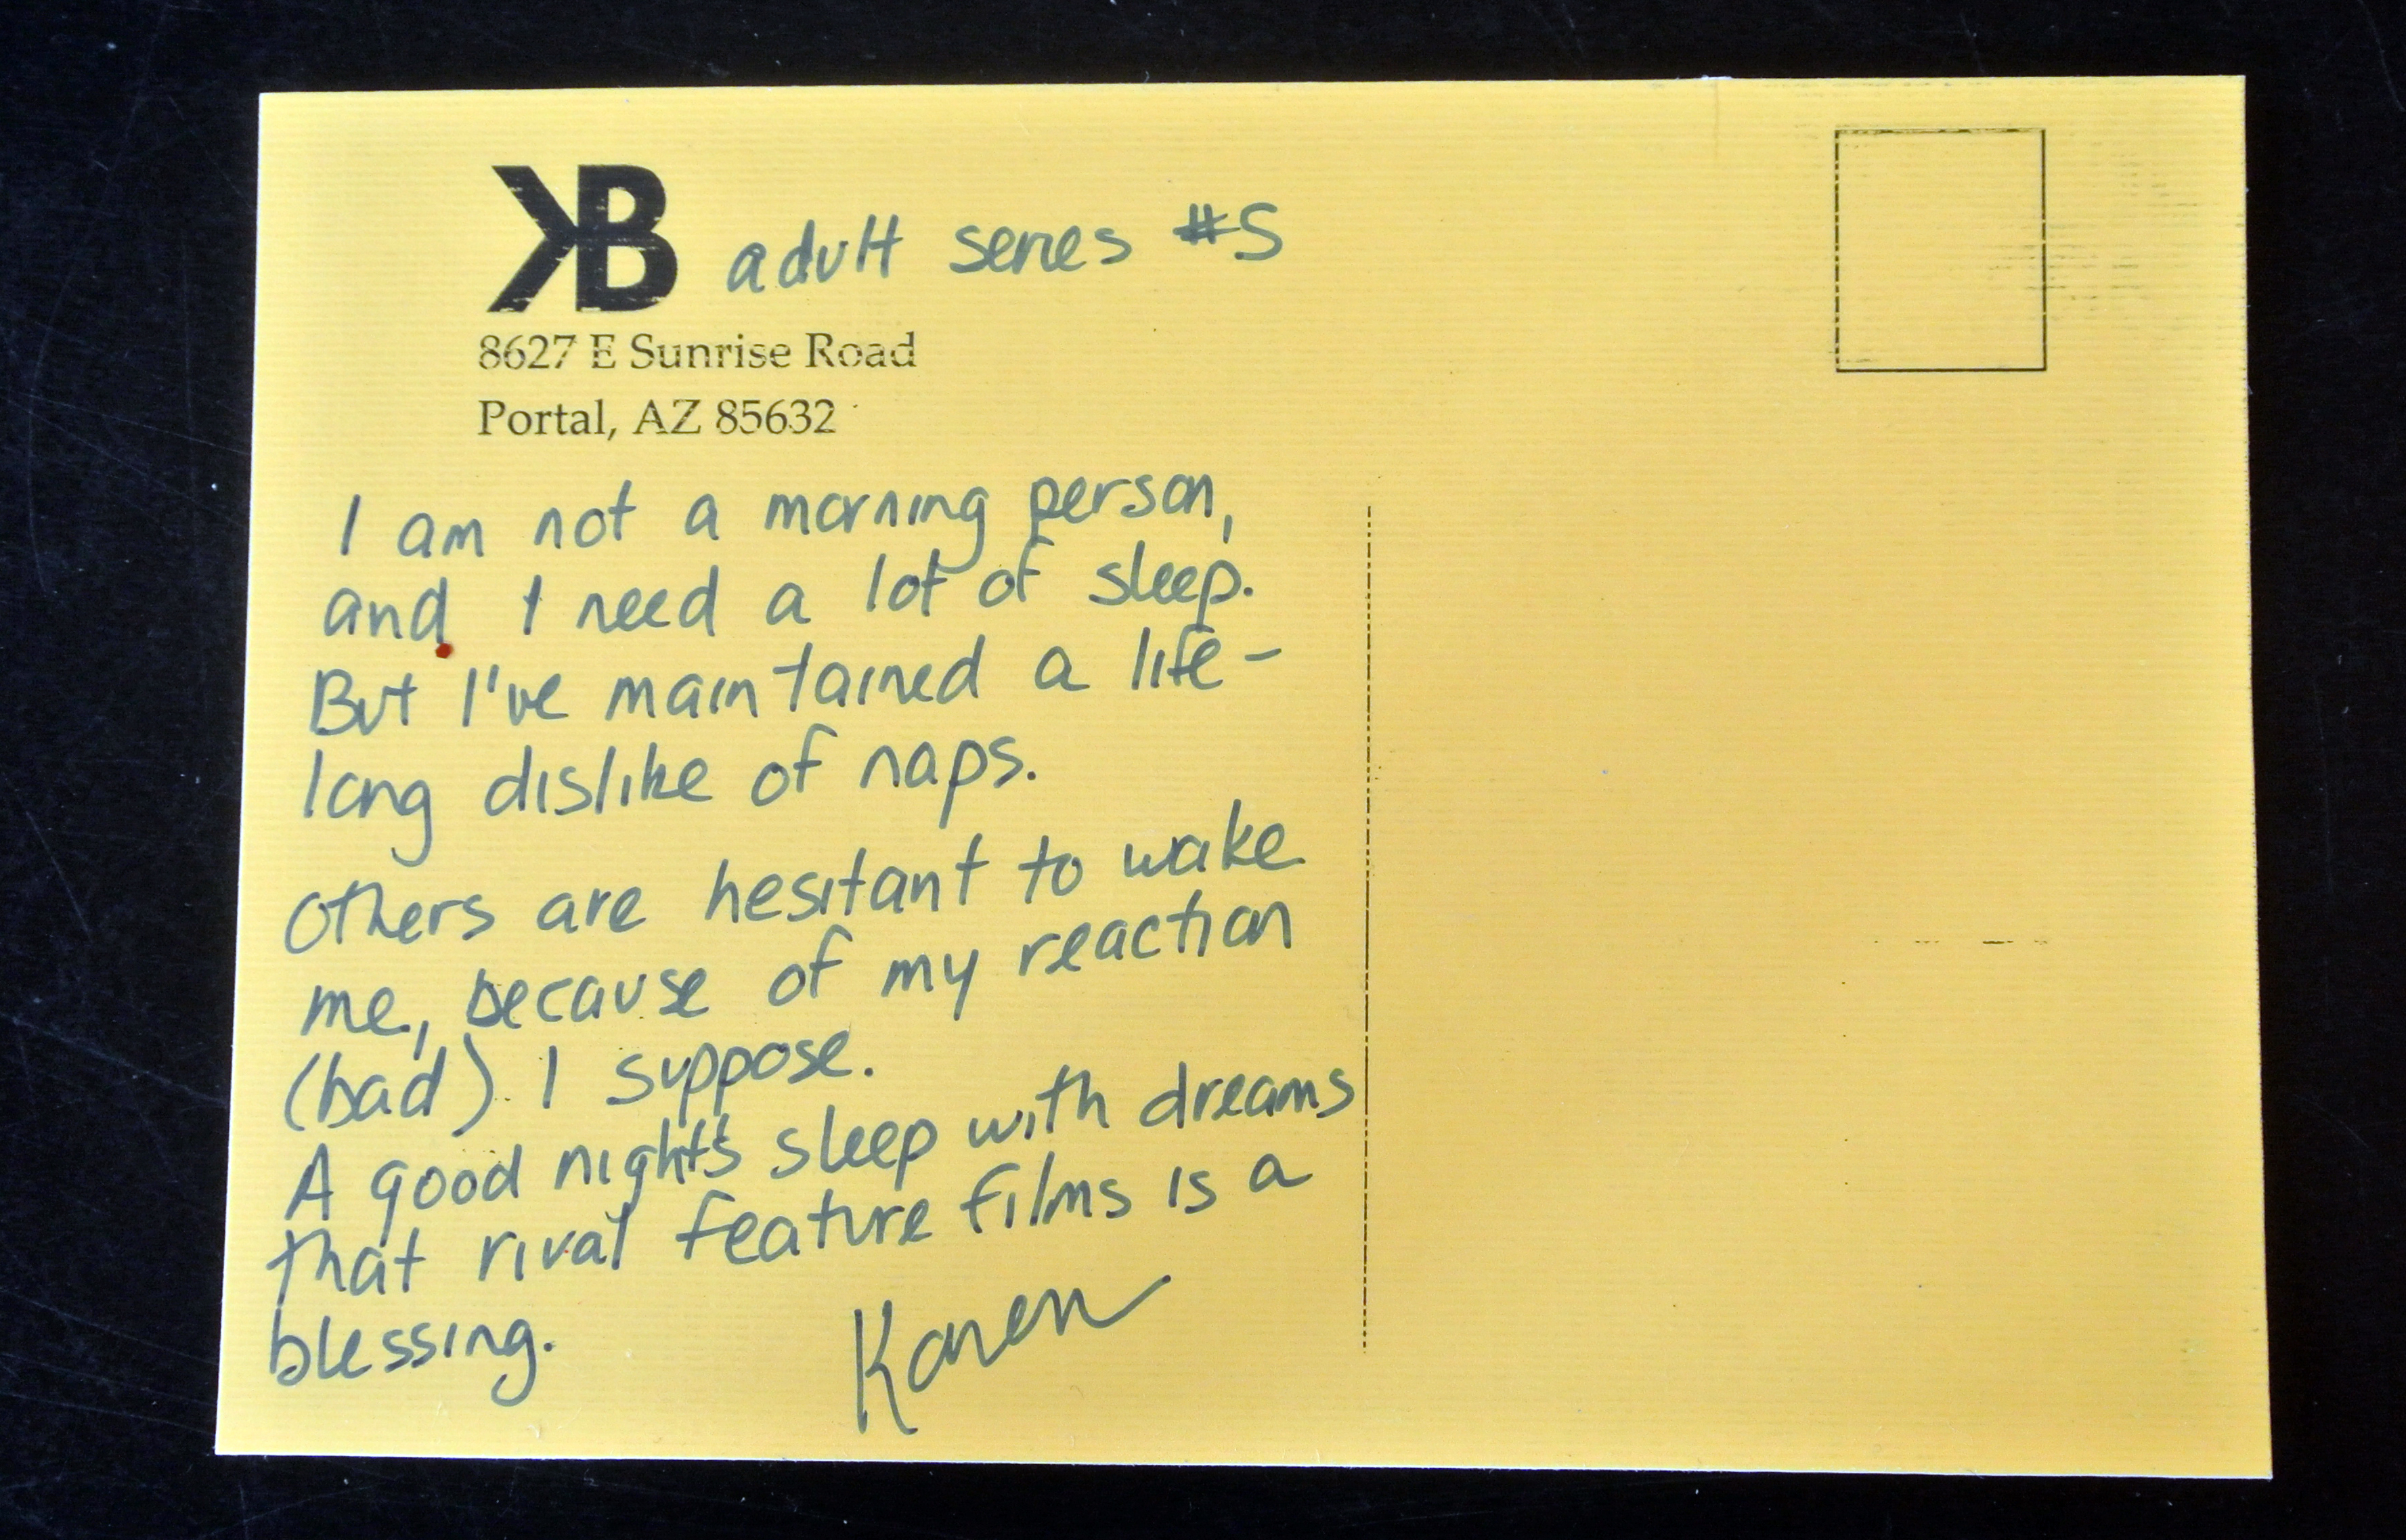 KB adult series #5
8627 E Sunrise Road
Portal, AZ 85632
I am not a morning person,
and I need a lot of sleep.
But I've maintained a life-
long dislike of naps.
Others are hesitant to wake
me, because of my reaction
(bad) I suppose.
A good night's sleep with dreams
that rival feature films is a
blessing.
Karen